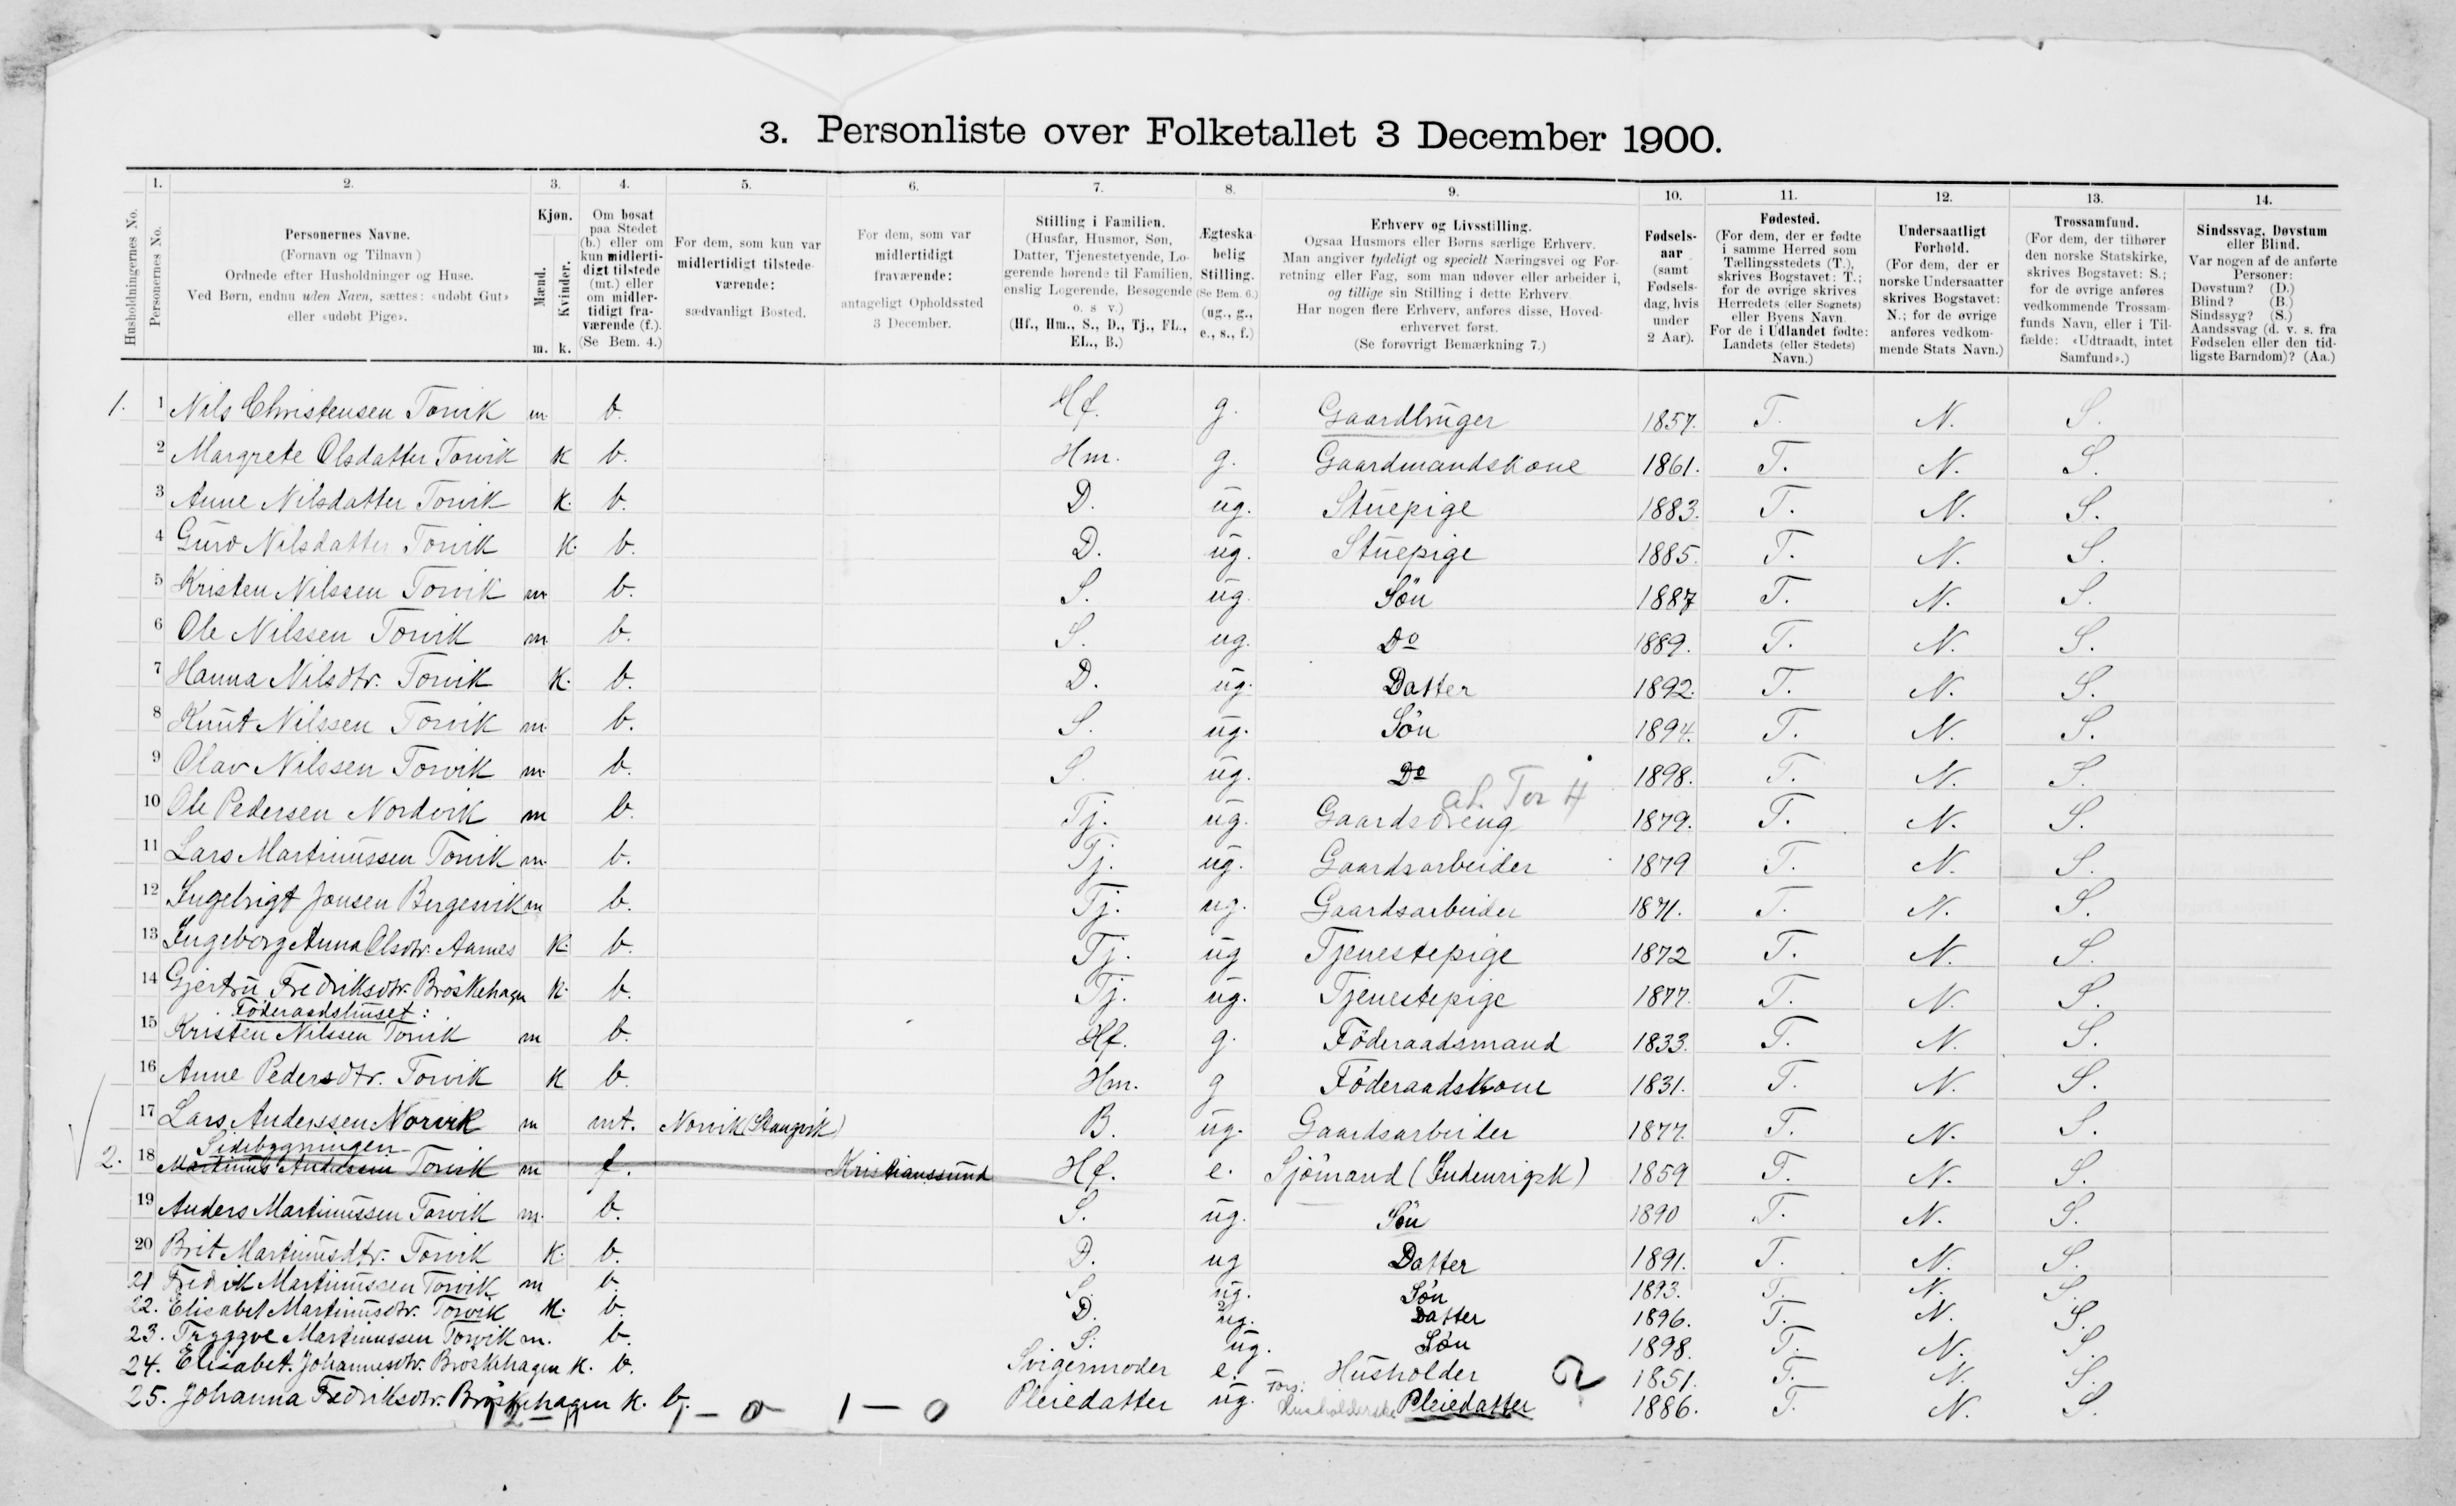 3. Personliste over Folketallet 3 December 1900.
1. 2. 3. 4. 5. 6. 7. 8. 9. 10. 11. 12. 13. 14.
Husholdningernes No.
Personernes No.
Personernes Navne.
(Fornavn og Tilnavn)
Ordnede efter Husholdninger og Huse.
Ved Børn, endnu uden Navn, sættes: «udøbt Gut»
eller «udøbt Pige».
Kjøn.
Mænd.
Kvinder.
m. k.
Om bosat
paa Stedet
(b.) eller om
kun midlerti-
digt tilstede
(mt.) eller
om midler-
tidigt fra-
værende (f.).
(Se Bem. 4.)
For dem, som kun var
midlertidigt tilstede-
værende:
sædvanligt Bosted.
For dem, som var
midlertidigt
fraværende:
antageligt Opholdssted
3 December.
Stilling i Familien.
(Husfar, Husmor, Søn,
Datter, Tjenestetyende, Lo-
gerende hørende til Familien,
enslig Logerende, Besøgende
o. s. v.)
(Hf., Hm., S., D., Tj., FL.,
EL., B.)
Ægteska-
belig
Stilling.
(Se Bem. 6.)
(ug., g.,
e., s., f.)
Erhverv og Livsstilling.
Ogsaa Husmors eller Børns særlige Erhverv.
Man angiver tydeligt og specielt Næringsvei og For-
retning eller Fag, som man udøver eller arbeider i,
og tillige sin Stilling i dette Erhverv.
Har nogen flere Erhverv, anføres disse, Hoved-
erhvervet først.
(Se forøvrigt Bemærkning 7.)
Fødsels-
aar
(samt
Fødsels-
dag, hvis
under
2 Aar).
Fødested.
(For dem, der er fødte
i samme Herred som
Tællingsstedets (T.),
skrives Bogstavet: T.;
for de øvrige skrives
Herredets (eller Sognets)
eller Byens Navn.
For de i Udlandet fødte:
Landets (eller Stedets)
Navn.)
Undersaatligt
Forhold.
(For dem, der er
norske Undersaatter
skrives Bogstavet:
N.; for de øvrige
anføres vedkom-
mende Stats Navn.)
Trossamfund.
(For dem, der tilhører
den norske Statskirke,
skrives Bogstavet: S.;
for de øvrige anføres
vedkommende Trossam-
funds Navn, eller i Til-
fælde: «Udtraadt, intet
Samfund».)
Sindssvag, Døvstum
eller Blind.
Var nogen af de anførte
Personer:
Døvstum? (D.)
Blind? (B.)
Sindssyg? (S.)
Aandssvag (d. v. s. fra
Fødselen eller den tid-
ligste Barndom)? (Aa.)
1. 1 Nils Christensen Torvik m. b. Hf. g. Gaardbruger 1857. T. N. S.
2 Margrete Olsdatter Torvik k b. Hm. g. Gaardmandskone 1861. T. N. S.
3 Anne Nilsdatter Torvik k. b. D. ug. Stuepige 1883. T. N. S.
4 Guro Nilsdatter Torvik k. b. D. ug. Stuepige 1885. T. N. S.
5 Kristen Nilssen Torvik m b. S. ug. Sön 1887 T. N. S.
6 Ole Nilssen Torvik m b. S. ug. Do 1889. T. N. S.
7 Hanna Nilsdtr. Torvik k. b. D. ug. Datter 1892. T. N. S.
8 Knut Nilssen Torvik m. b. S. ug. Sön 1894. T. N. S.
9 Olav Nilssen Torvik m. b. S. ug. Do 1898. T. N. S.
10 Ole Pedersen Nordvik m b. Tj. ug. Gaardsdreng 1879. T. N. S.
11 Lars Martinussen Torvik m. b. Tj. ug. Gaardsarbeider 1879 T. N. S.
12 Ingebrigt Jonsen Bergesvik m b. Tj. ug. Gaardsarbeider 1871. T. N. S.
13 Ingeborg Anna Olsdtr. Aarnes k. b. Tj. ug Tjenestepige 1872 T. N. S.
14 Gjertru Fredriksdtr. Bröskehagen k. b. Tj. ug. Tjenestepige 1877. T. N. S.
Föderaadshuset:
15 Kristen Nilssen Torvik m b. Hf. g. Föderaadsmand 1833. T. N. S.
16 Anne Pedersdtr. Torvik k b. Hm. g Föderaadskone 1831. T. N. S.
17 Lars Anderssen Norvik m mt. Norvik (Stangvik) B. ug. Gaardsarbeider 1877. T. N. S.
Sidebygningen
2. 18 Martinus Andersen Torvik m f. Kristianssund Hf. e. Sjömand (Indenrigsk) 1859 T. N. S.
19 Anders Martinussen Torvik m. b. S. ug. Sön 1890 T. N. S.
20 Brit Martinusdtr. Torvik k. b. D. ug Datter 1891. T. N. S.
21 Fredrik Martinussen Torvik m b. S. ug. Sön 1893. T. N. S.
22. Elisabet Martinusdtr. Torvik k. b. D. ug. Datter 1896. T. N. S.
23. Tryggve Martinussen Torvik m. b. S. ug. Sön 1898. T. N. S.
24. Elisabet Johannesdtr. Bröskehagen k. b. Svigermoder e. Husholder 1851. T. N. S.
25. Johanna Fredriksdtr. Bröskehagen k. b. Pleiedatter ug. Fors: Husholderske Pleiedatter 1886. T. N. S.
12 – 11 1 – 0 1 – 0